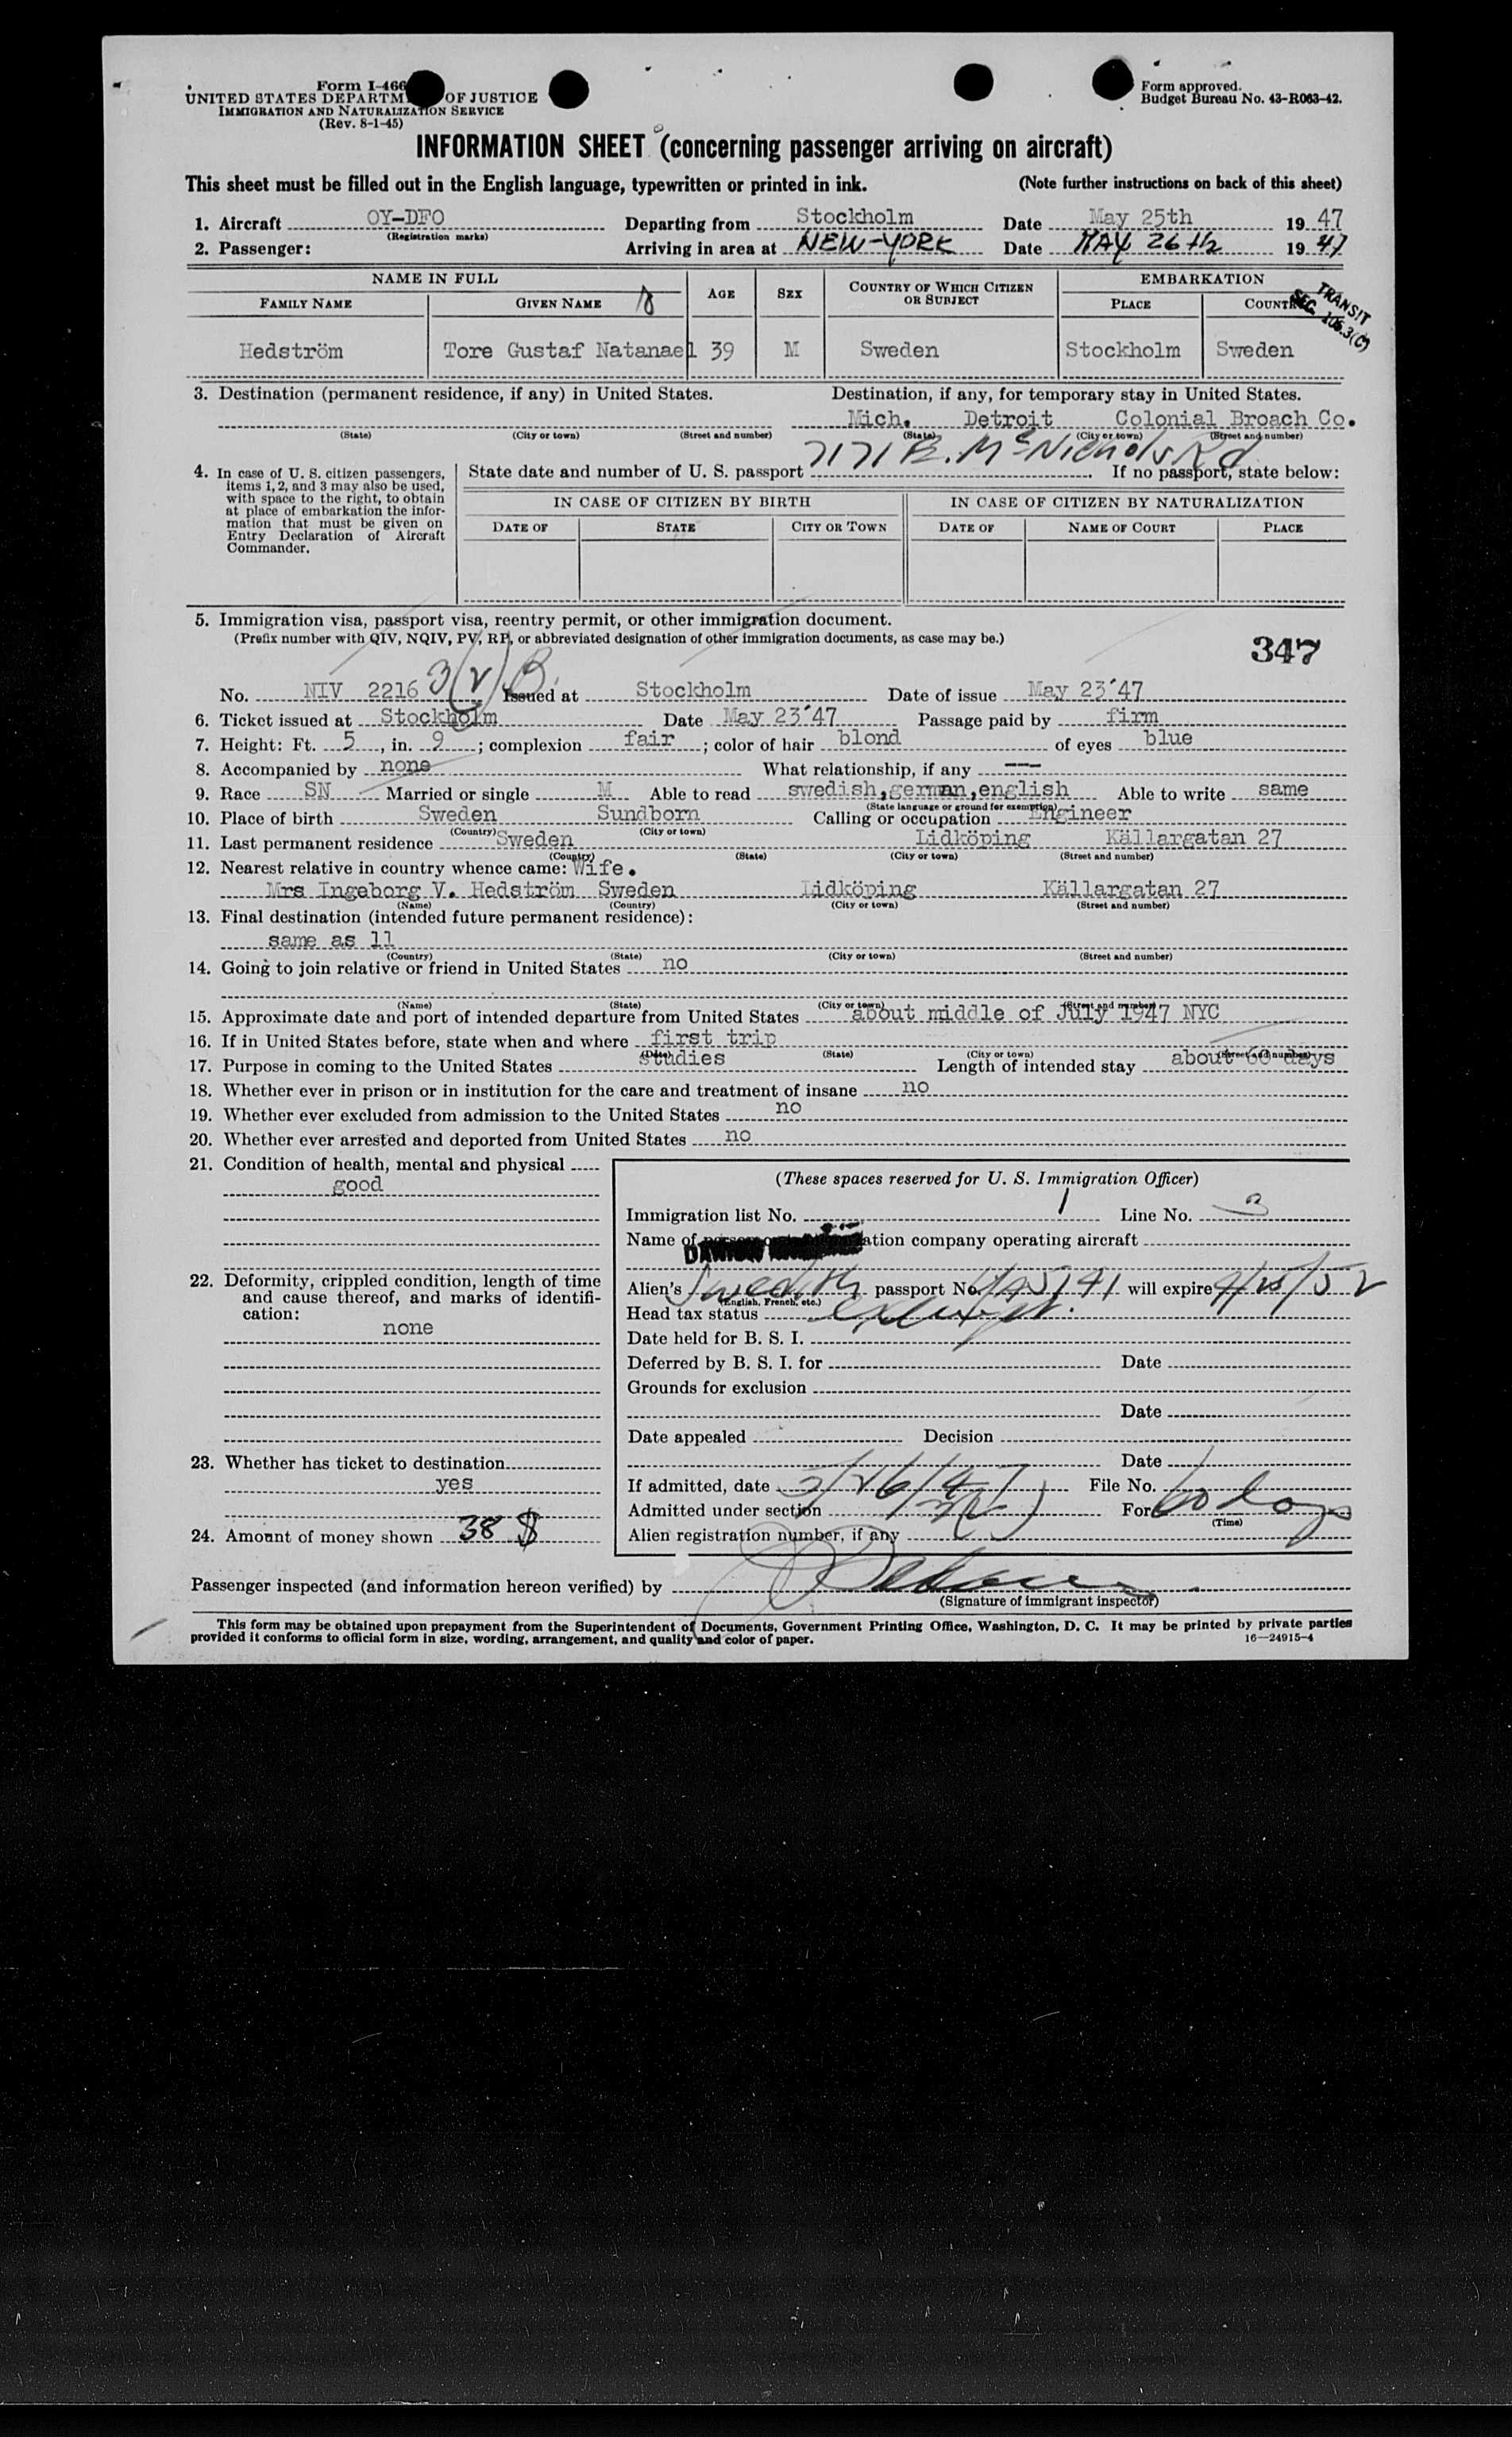 Form I-466
UNITED STATES DEPARTM OF JUSTICE
IMMIGRATION AND NATURALIZATION SERVICE
(Rev. 8-1-45)
Form approved.
Budget Bureau No. 43-R063-42.
INFORMATION SHEET (concerning passenger arriving on aircraft)
This sheet must be filled out in the English language, typewritten or printed in ink. (Note further instructions on back of this sheet)
1. Aircraft OY-DFO Departing from Stockholm Date May 25th 1947
(Registration marks)
2. Passenger: Arriving in area at NEW-YORK Date MAY 26th 1947
NAME IN FULL AGE SEX COUNTRY OF WHICH CITIZEN OR SUBJECT EMBARKATION
FAMILY NAME GIVEN NAME PLACE COUNTR
TRANSIT
SEC. 106.3(C)
Hedström Tore Gustaf Natanael 39 M Sweden Stockholm Sweden
3. Destination (permanent residence, if any) in United States. Destination, if any, for temporary stay in United States.
Mich. Detroit Colonial Broach Co.
(State) (City or town) (Street and number) (State) (City or town) (Street and number)
7171 E. McNichols Rd
4. In case of U. S. citizen passengers, items 1, 2, and 3 may also be used, with space to the right, to obtain at place of embarkation the information that must be given on Entry Declaration of Aircraft Commander.
State date and number of U. S. passport If no passport, state below:
IN CASE OF CITIZEN BY BIRTH IN CASE OF CITIZEN BY NATURALIZATION
DATE OF STATE CITY OR TOWN DATE OF NAME OF COURT PLACE
5. Immigration visa, passport visa, reentry permit, or other immigration document.
(Prefix number with QIV, NQIV, PV, RP, or abbreviated designation of other immigration documents, as case may be.)
347
3(2) B
No. NIV 2216 Issued at Stockholm Date of issue May 23´47
6. Ticket issued at Stockholm Date May 23´47 Passage paid by firm
7. Height: Ft. 5, in. 9; complexion fair; color of hair blond of eyes blue
8. Accompanied by none What relationship, if any ---
9. Race SN Married or single M Able to read swedish,german,english Able to write same
(State language or ground for exemption)
10. Place of birth Sweden Sundborn Calling or occupation Engineer
(Country) (City or town)
11. Last permanent residence Sweden Lidköping Källargatan 27
(Country) (State) (City or town) (Street and number)
12. Nearest relative in country whence came: Wife.
Mrs Ingeborg V. Hedström Sweden Lidköping Källargatan 27
(Name) (Country) (City or town) (Street and number)
13. Final destination (intended future permanent residence):
same as 11
(Country) (State) (City or town) (Street and number)
14. Going to join relative or friend in United States no
(Name) (State) (City or town) (Street and number)
15. Approximate date and port of intended departure from United States about middle of July 1947 NYC
16. If in United States before, state when and where first trip
(Date) (State) (City or town) (Street and number)
17. Purpose in coming to the United States studies Length of intended stay about 60 days
18. Whether ever in prison or in institution for the care and treatment of insane no
19. Whether ever excluded from admission to the United States no
20. Whether ever arrested and deported from United States no
21. Condition of health, mental and physical
good
22. Deformity, crippled condition, length of time and cause thereof, and marks of identification:
none
23. Whether has ticket to destination
yes
24. Amount of money shown 38 $
(These spaces reserved for U. S. Immigration Officer)
Immigration list No. 1 Line No. 3
Name of ation company operating aircraft
Alien's Swedish passport No. will expire 4/25/52
(English, French, etc.)
Head tax status exempt.
Date held for B. S. I.
Deferred by B. S. I. for Date
Grounds for exclusion
Date
Date appealed Decision
Date
If admitted, date 5/26/47 File No.
Admitted under section 3(2) For 60 days
(Time)
Alien registration number, if any
Passenger inspected (and information hereon verified) by
(Signature of immigrant inspector)
This form may be obtained upon prepayment from the Superintendent of Documents, Government Printing Office, Washington, D. C. It may be printed by private parties
provided it conforms to official form in size, wording, arrangement, and quality and color of paper. 16—24915-4